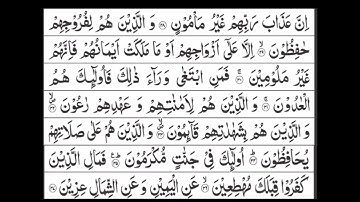 اِنَّ عَذَابَ رَبِّهِمْ غَيْرُ مَاْمُوْنٍ ﴿۲۸﴾ وَ الَّذِيْنَ هُمْ لِفُرُوْجِهِمْ
حٰفِظُوْنَ ﴿۲۹﴾ اِلَّا عَلٰٓى اَزْوَاجِهِمْ اَوْ مَا مَلَكَتْ اَيْمَانُهُمْ فَاِنَّهُمْ
غَيْرُ مَلُوْمِيْنَ ﴿۳۰﴾ فَمَنِ ابْتَغٰى وَرَآءَ ذٰلِكَ فَاُولٰٓئِكَ هُمُ
الْعٰدُوْنَ ﴿۳۱﴾ وَ الَّذِيْنَ هُمْ لِاَمٰنٰتِهِمْ وَ عَهْدِهِمْ رٰعُوْنَ ﴿۳۲﴾
وَ الَّذِيْنَ هُمْ بِشَهٰدٰتِهِمْ قَآئِمُوْنَ ﴿۳۳﴾ وَ الَّذِيْنَ هُمْ عَلٰى صَلَاتِهِمْ
يُحَافِظُوْنَ ﴿۳۴﴾ اُولٰٓئِكَ فِيْ جَنّٰتٍ مُّكْرَمُوْنَ ﴿۳۵﴾ فَمَالِ الَّذِيْنَ
كَفَرُوْا قِبَلَكَ مُهْطِعِيْنَ ﴿۳۶﴾ عَنِ الْيَمِيْنِ وَ عَنِ الشِّمَالِ عِزِيْنَ ﴿۳۷﴾